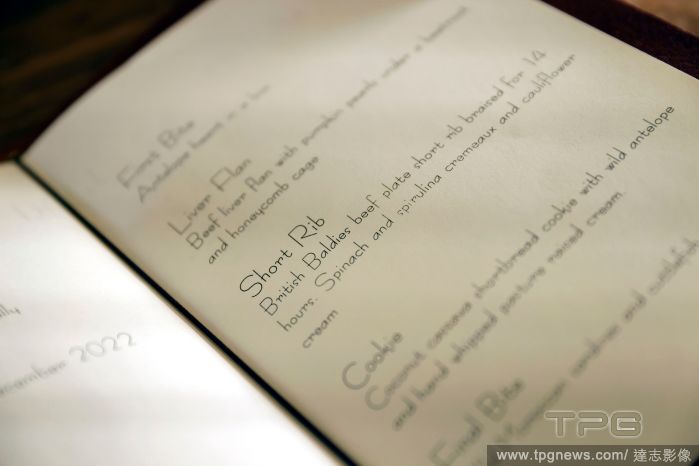 First Bite
Antelope heart in a
Liver Flan
Beef liver flan with pumpkin pearls under a beetroot
and honeycomb cage
Short Rib
British Baldies beef plate short rib braised for 14
hours. Spinach and spirulina cremeaux and cauliflower
cream
Cookie
Coconut carcave shortbread cookie with wild antelope
and hand whipped pasture raised cream.
Final Bite
and
December 2022
TPG
www.tpgnews.com/ 達志影像